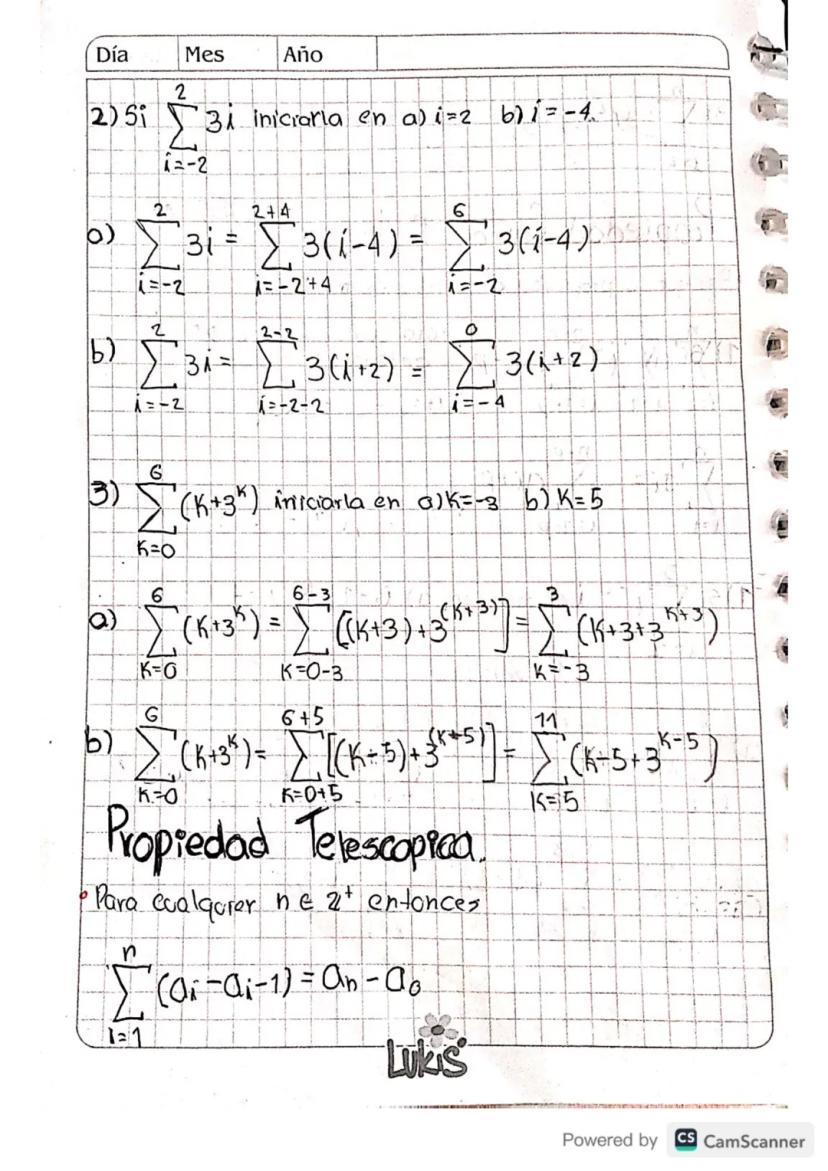 Día Mes Año
2) Si \sum_{i=-2}^{2} 3i iniciarla en a) i=2 b) i=-4.
a) \sum_{i=-2}^{2} 3i = \sum_{i=-2+4}^{2+4} 3(i-4) = \sum_{i=-2}^{6} 3(i-4)
b) \sum_{i=-2}^{2} 3i = \sum_{i=-2-2}^{2-2} 3(i+2) = \sum_{i=-4}^{0} 3(i+2)
3) \sum_{K=0}^{6} (K+3^K) iniciarla en a) K=-3 b) K=5
a) \sum_{K=0}^{6} (K+3^K) = \sum_{K=0-3}^{6-3} [(K+3)+3^{(K+3)}] = \sum_{K=-3}^{3} (K+3+3^{K+3})
b) \sum_{K=0}^{6} (K+3^K) = \sum_{K=0+5}^{6+5} [(K-5)+3^{(K-5)}] = \sum_{K=5}^{11} (K-5+3^{K-5})
Propiedad Telescopica.
• Para cualquier n ∈ Z^+ entonces
\sum_{i=1}^{n} (a_i - a_i-1) = a_n - a_0
LUKIS
Powered by CS CamScanner